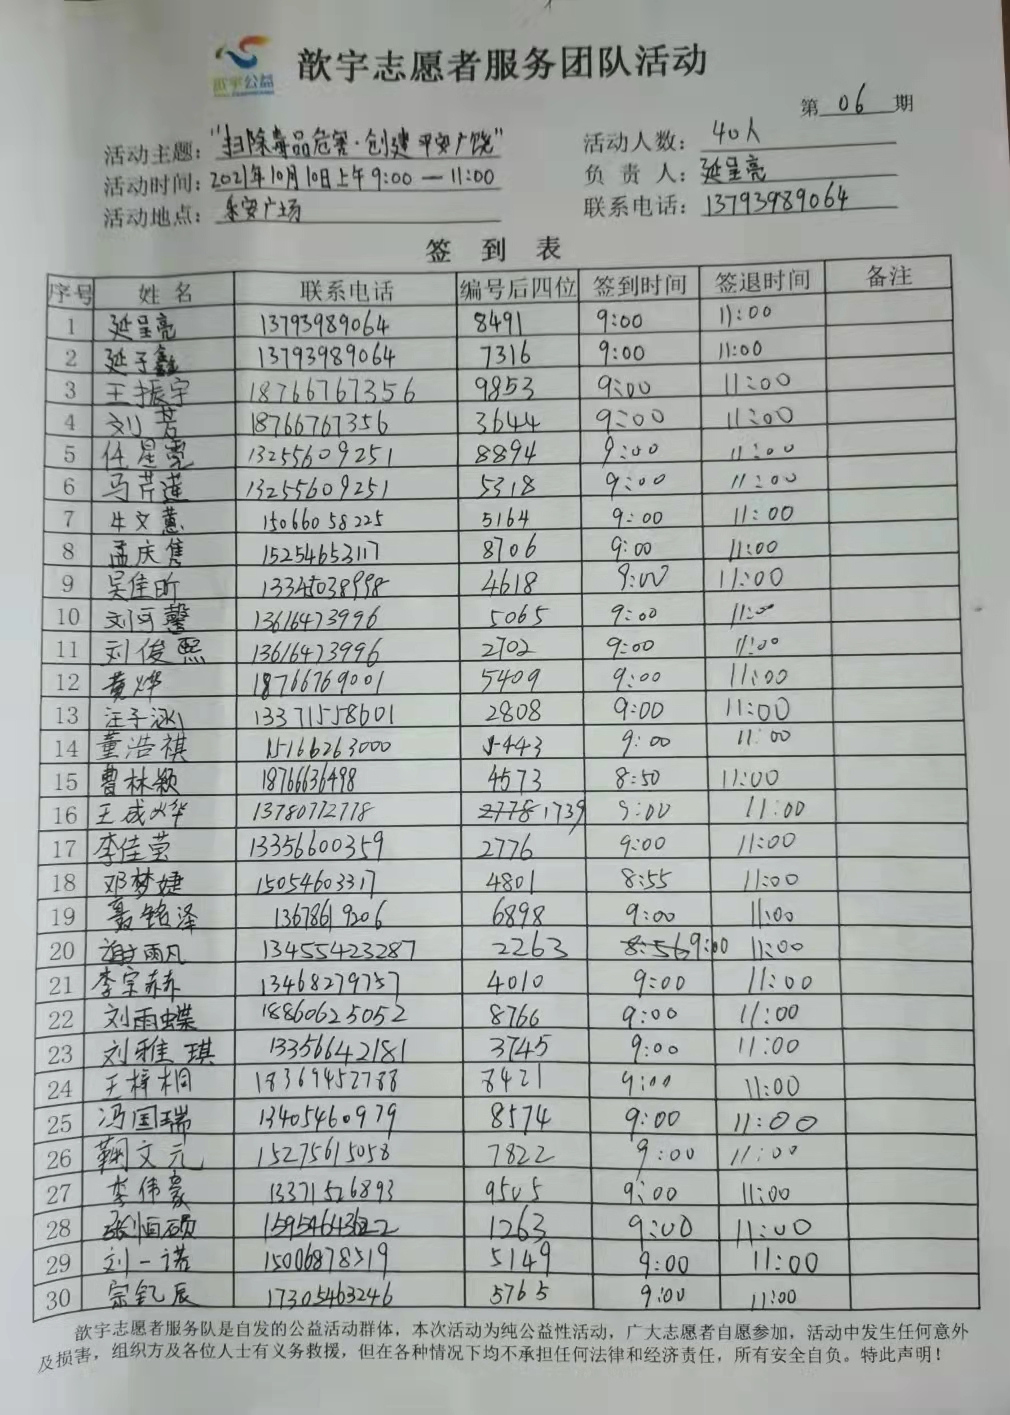 歆宇公益
歆宇志愿者服务团队活动
第 06 期
活动主题："扫除毒品危害·创建平安广饶"
活动人数：40人
活动时间：2021年10月10日上午9:00—11:00
负责人：延呈亮
活动地点：乐安广场
联系电话：13793989064
签到表
序号 姓名 联系电话 编号后四位 签到时间 签退时间 备注
1 延呈亮 13793989064 8491 9:00 11:00
2 延子鑫 13793989064 7316 9:00 11:00
3 王振宇 18766767356 9853 9:00 11:00
4 刘芳 18766767356 3644 9:00 11:00
5 任星霓 13255609251 8894 9:00 11:00
6 马芹莲 13255609251 5318 9:00 11:00
7 牛文慧 15066058225 5164 9:00 11:00
8 孟庆隽 15254653117 8706 9:00 11:00
9 吴佳昕 13345038998 4618 9:00 11:00
10 刘可馨 13616473996 5065 9:00 11:00
11 刘俊熙 13616473996 2702 9:00 11:00
12 黄烨 18766769001 5409 9:00 11:00
13 汪子涵 13371558601 2808 9:00 11:00
14 董浩祺 15166263000 5443 9:00 11:00
15 曹林颖 18766636498 4573 8:50 11:00
16 王成烨 13780772778 2778 1739 9:00 11:00
17 李佳莹 13356600359 2776 9:00 11:00
18 邓梦婕 15054603317 4801 8:55 11:00
19 聂铭泽 13678619206 6898 9:00 11:00
20 谢雨凡 13455423287 2263 8:56 9:00 11:00
21 李宗赫 13468279757 4010 9:00 11:00
22 刘雨蝶 18860625052 8766 9:00 11:00
23 刘雅琪 13356642181 3745 9:00 11:00
24 王梓桐 18369452788 8421 9:00 11:00
25 冯国瑞 13405460979 8574 9:00 11:00
26 鞠文元 15275615058 7822 9:00 11:00
27 李伟豪 13371526893 9505 9:00 11:00
28 张恒硕 1263 9:00 11:00
29 刘一诺 15006878519 5149 9:00 11:00
30 宗钇辰 17305463246 5765 9:00 11:00
歆宇志愿者服务队是自发的公益活动群体，本次活动为纯公益性活动，广大志愿者自愿参加，活动中发生任何意外
及损害，组织方及各位人士有义务救援，但在各种情况下均不承担任何法律和经济责任，所有安全自负。特此声明！